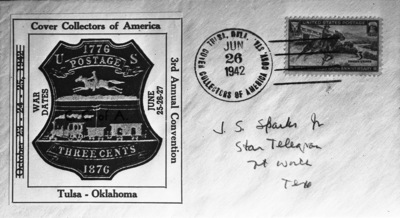 Cover Collectors of America
1776
U POSTAGE S
WAR
DATES
JUNE
25-26-27
3rd Annual Convention
of A.
THREE CENTS
1876
Tulsa - Oklahoma
TULSA, OKLA.
JUN
26
1942
COVER COLLECTORS OF AMERICA CONV. STA.
J. S. Sparks Jr
Star Telegram
Ft Worth
Tex